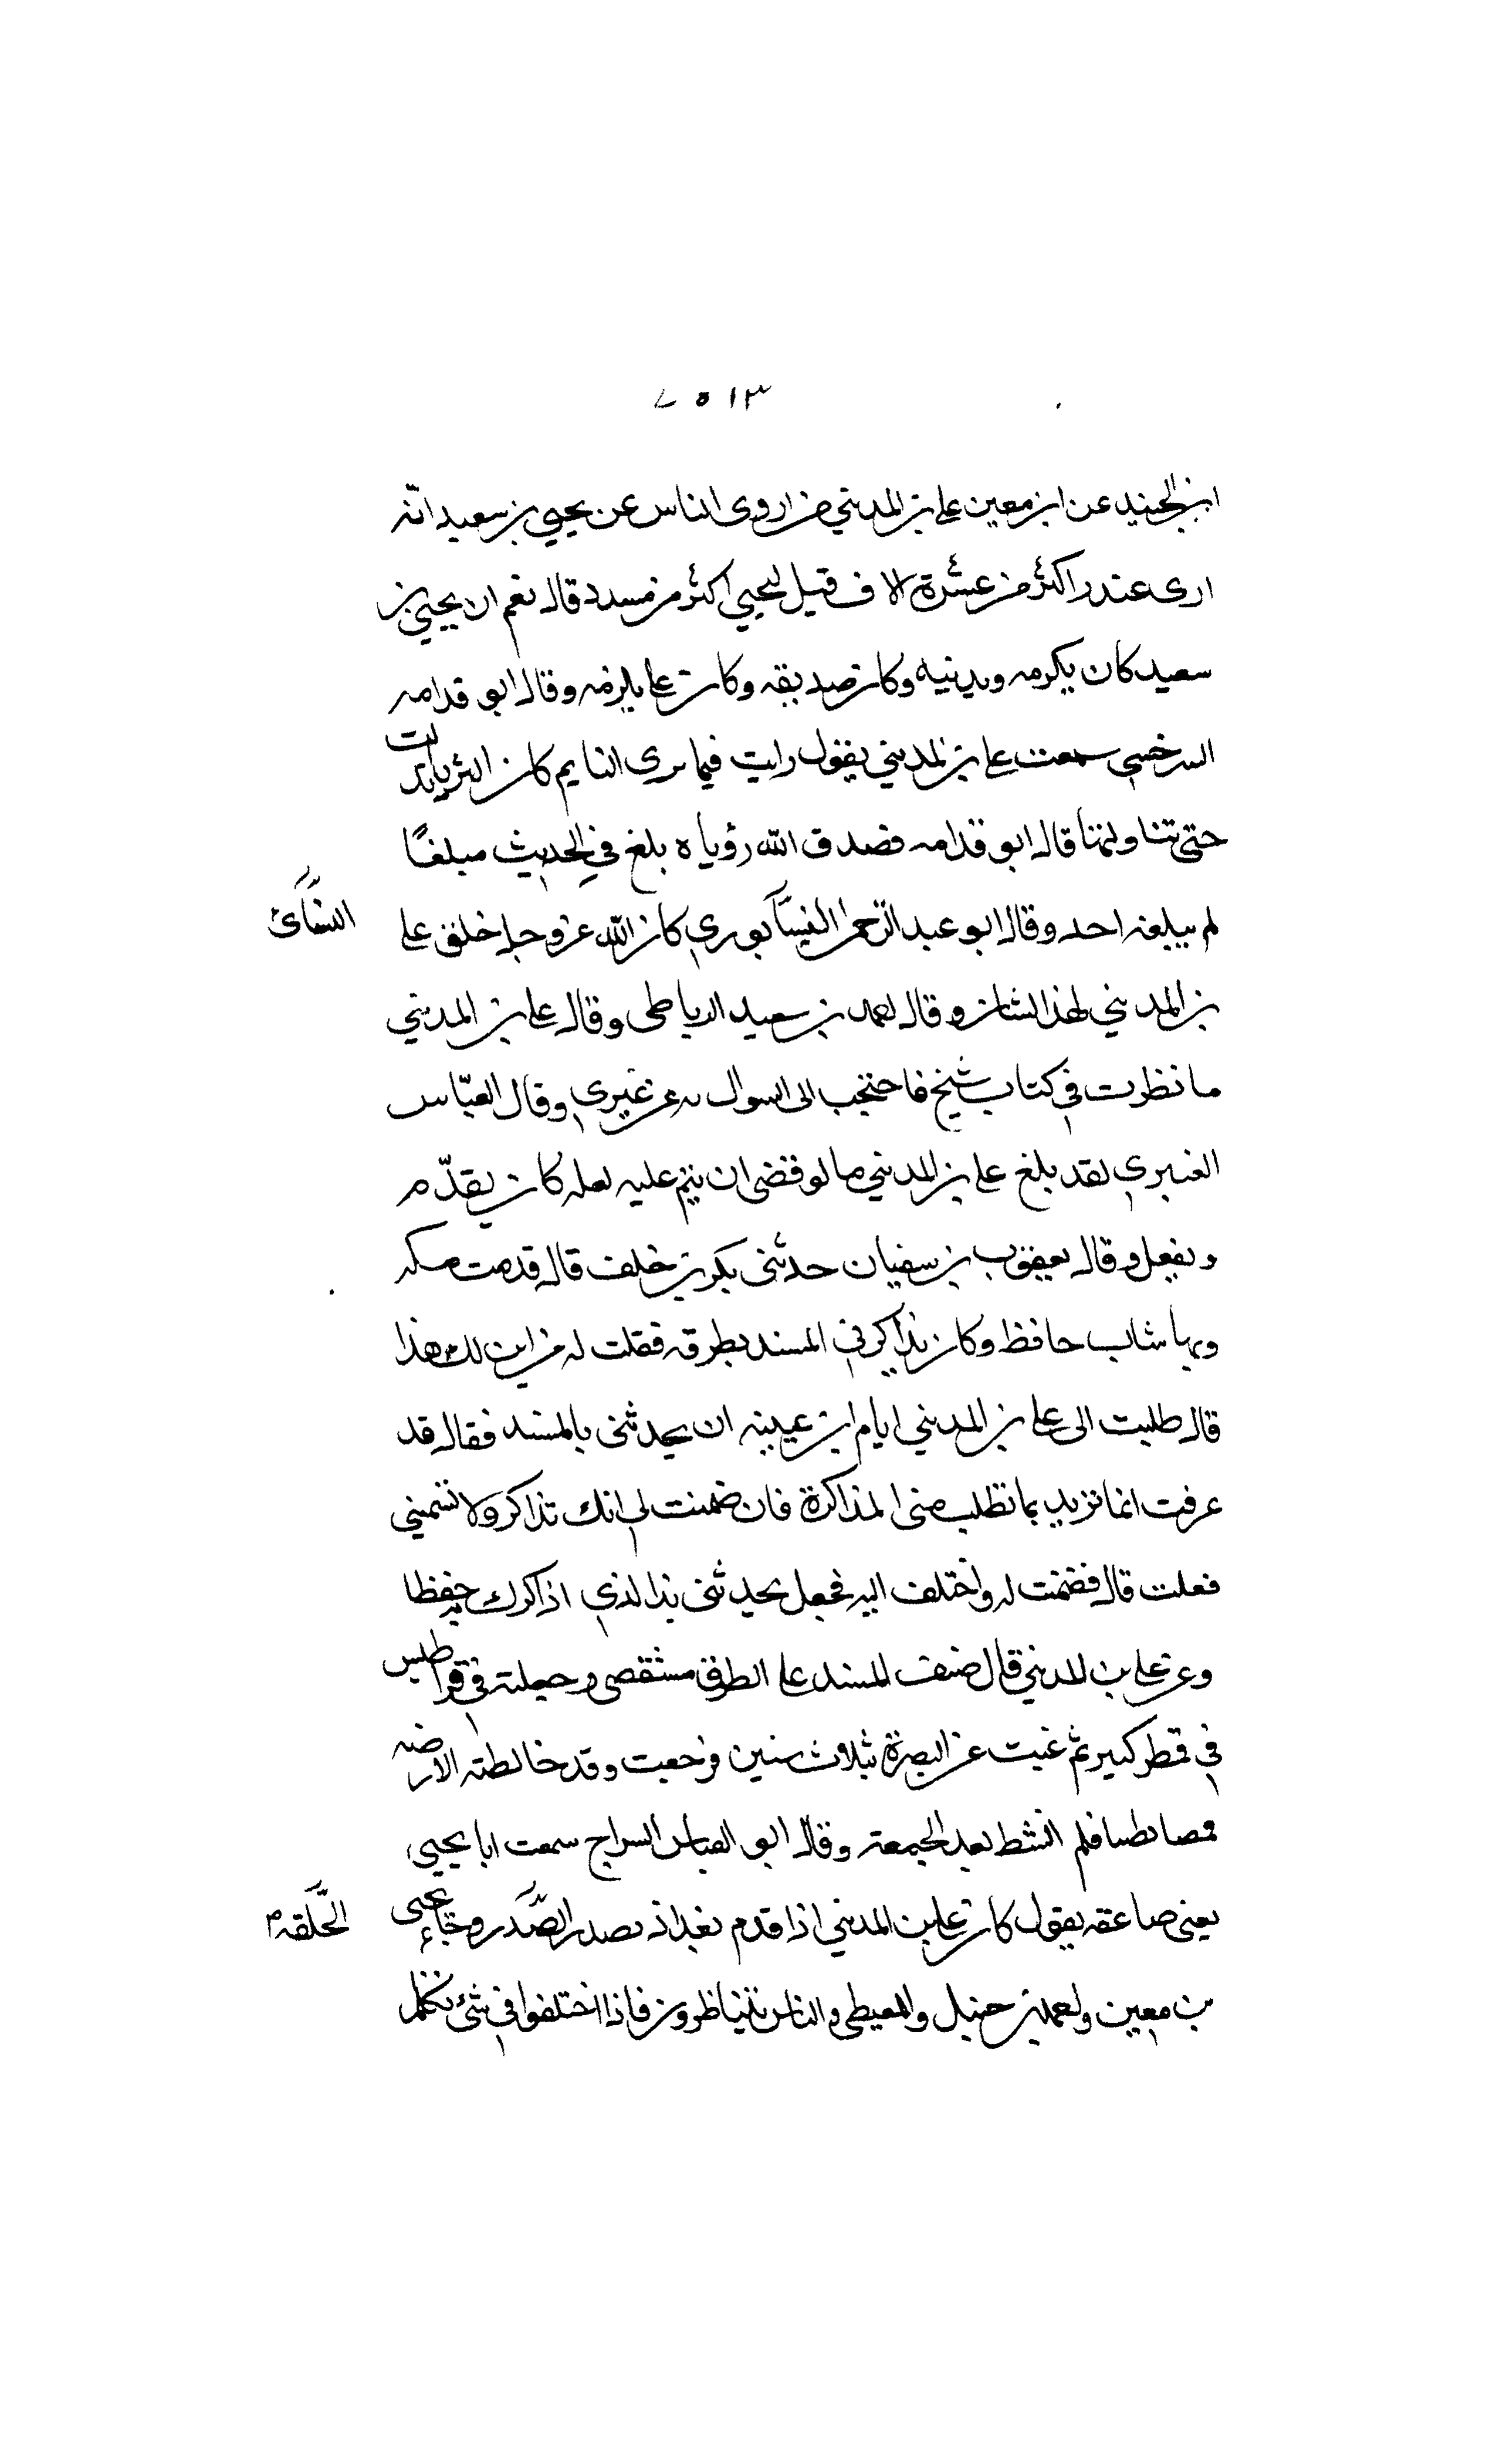 ٧ ٥ ١٣
ابن الجنيد عن ابن معين علي بن المديني من اروى الناس عن يحيي بن سعيد انه
ارى عنده اكثر من عشرة الاف قيل ليحيي اكثر من مسدد قال نعم ان يحيي بن
سعيد كان يكرمه ويدنيه وكان صديقه وكان علي يلزمه وقال ابو قدامه
السرخسي سمعت علي بن المديني يقول رايت فيما يرى النايم كان الثريا تدلت
حتى تناولتها قال ابو قدامه فصدق الله رؤياه بلغ في الحديث مبلغًا
لم يبلغه احد وقال ابو عبد الرحمن النيسابوري كان الله عز وجل خلق علي
النسائ
بن المديني لهذا الشان وقال احمد بن سعيد الرباطى وقال علي بن المديني
ما نظرت في كتاب شيخ فاحتجت الى السوال به عن غيري وقال العبّاس
العنبري لقد بلغ علي بن المديني ما لو قضى ان يتم عليه لعله كان يقدّم
وقال يعقوب بن سفيان حدثنى بكر بن خلف قال قدمت مكه
وبها شاب حافظ وكان يذاكرني المسند بطرقه فقلت له من اين لك هذا
قال طلبت الى علي بن المديني ايام ابن عيينه ان يحدثنى بالمسند فقال قد
عرفت انما تريد بما تطلب منى المذاكرة فان ضمنت لي انك تذاكر ولا تسميني
فعلت قال فضمنت له واختلف اليه فجعل يحدثنى بذا الذي اذاكرك به حفظا
وعن علي بن المديني قال صنف المسند على الطرق مستقصى وجعلته في قراطيس
في قمطر كبير ثم غبت عن البصرة ثلاث سنين فرجعت وقد خالطته الارضه
فلم انشط بعد لجمعه وقال ابو العباس السراج سمعت ابا يحيي
يعنى صاعقه يقول كان علي بن المديني اذا قدم بغداذ تصدر الصَّدر وجاء يحيى
الحَّلقه
بن معين واحمد بن حنبل والمعيطي والناس يتناظرون فاذا اختلفوا في شئ تكلم